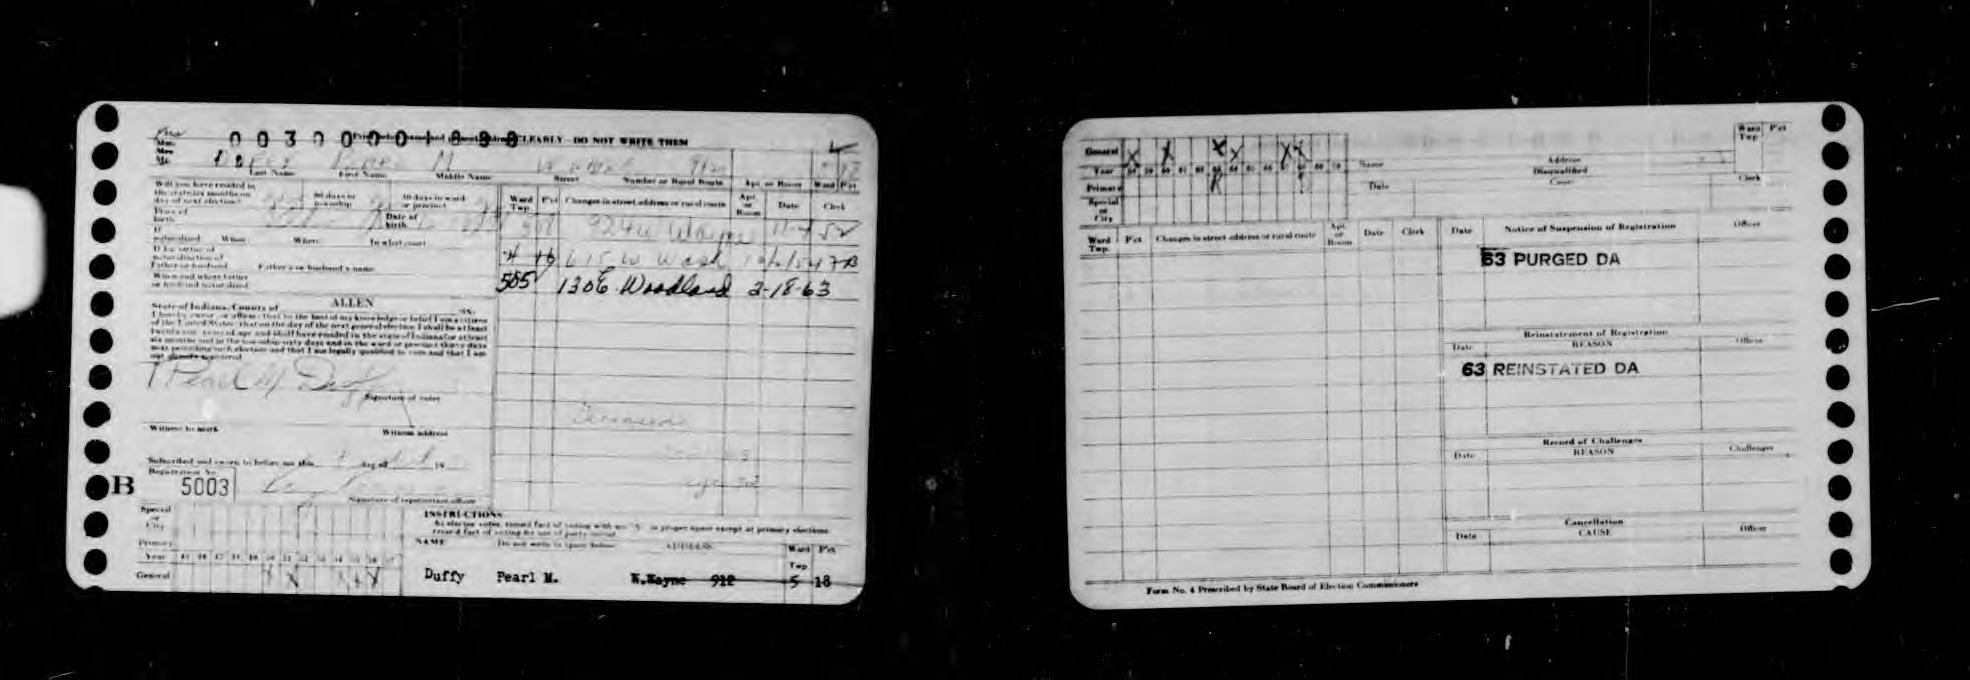 Mrs
Miss
Mrs
Mr.
0030000 1898
Print your name and present address CLEARLY - DO NOT WRITE THEM
Duffy Pearl M W Wayne 912
Last Name First Name Middle Name Street Number or Rural Route Apt. or Room Ward P'ct
Will you have resided in the state six months on day of next election?
60 days in township
30 days in ward or precinct
Place of birth
Date of birth
If naturalized When Where In what court
If by virtue of naturalization of Father or husband Father's or husband's name
When and where father or husband naturalized
Ward Twp P'ct Changes in street address or rural route Apt. or Room Date Clerk
924 W Wayne
4 16 615 W Wash
505 130 E. Woodland 2-18-63
State of Indiana, County of ALLEN ss:
I hereby swear or affirm that to the best of my knowledge or belief I am a citizen
of the United States; that on the day of the next general election I shall be at least
twenty-one years of age and shall have resided in the state of Indiana for at least
six months and in the township sixty days and in the ward or precinct thirty days
next preceding such election and that I am legally qualified to vote and that I am
not already registered.
Pearl M Duffy
Signature of voter
Witness to mark Witness address
Subscribed and sworn to before me this day of 19
Registration No.
B 5003
Signature of registration officer
Special or City
Primary
Year 45 46 47 48 49 50 51 52 53 54 55 56 57
General X X X X X
INSTRUCTIONS
As elector votes, record fact of voting with an "X" in proper space except at primary elections
record fact of voting by use of party initial.
NAME Do not write in space below ADDRESS Ward Twp P'ct
Duffy Pearl M. W.Wayne 912 5 18
General X X X X X X
Year 58 59 60 61 62 63 64 65 66 67 68 69 70
Primary
Special or City
Name Address Ward Twp P'ct
Disqualified
Date Cause Clerk
Ward Twp. P'ct Changes in street address or rural route Apt. or Room Date Clerk
Date Notice of Suspension of Registration Officer
63 PURGED DA
Reinstatement of Registration
Date REASON Officer
63 REINSTATED DA
Record of Challenges
Date REASON Challenger
Cancellation
Date CAUSE Officer
Form No. 4 Prescribed by State Board of Election Commissioners